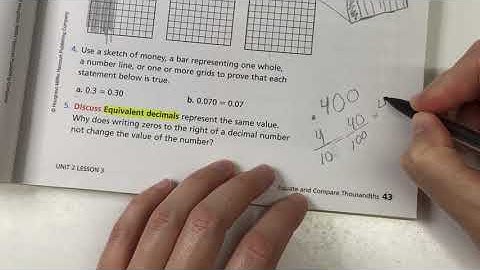 4. Use a sketch of money, a bar representing one whole,
a number line, or one or more grids to prove that each
statement below is true.
a. 0.3 = 0.30
b. 0.070 = 0.07
5. Discuss Equivalent decimals represent the same value.
Why does writing zeros to the right of a decimal number
not change the value of the number?
.400
4/10 40/100 =
UNIT 2 LESSON 3
Equate and Compare Thousandths 43
© Houghton Mifflin Harcourt Publishing Company